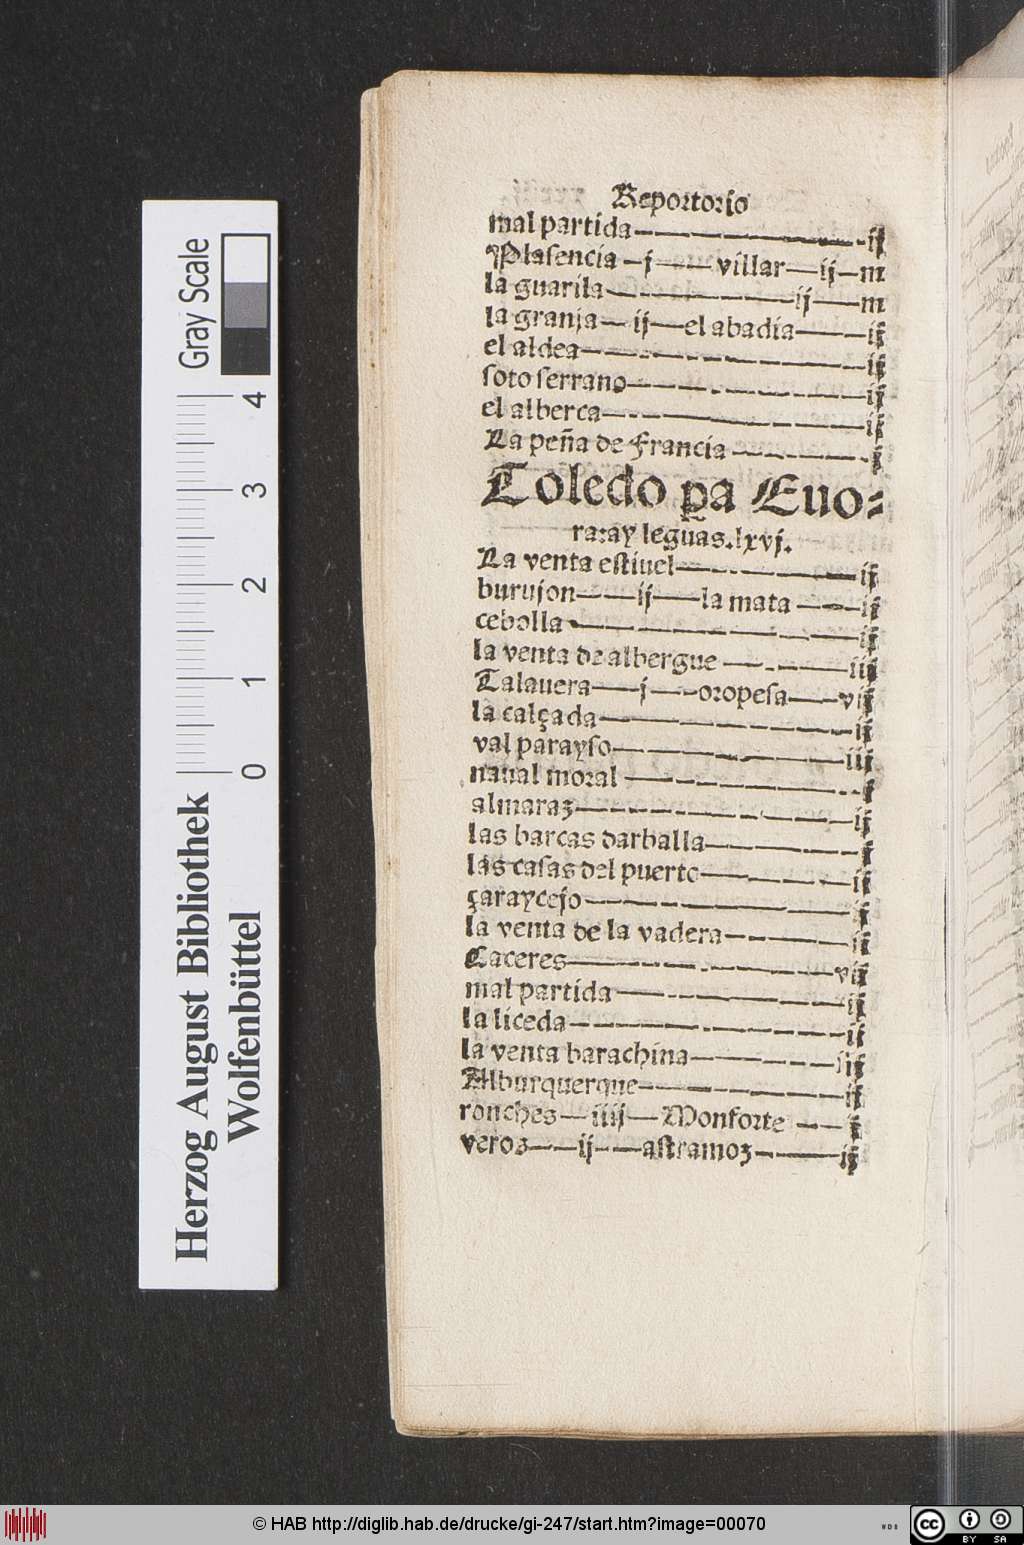 Reportorio
mal partida ij
Plasencia j villar ij m
la guarila ij m
la granja ij el abadia ij
el aldea ij
soto serrano ij
el alberca ij
La peña de Francia
Toledo pa Euo-
ra:ay leguas.lxvj.
La venta estiuel ij
burujon ij la mata ij
cebolla ij
la venta de albergue iij
Talauera j oropesa
la calçada ij
val parayso iij
naual moral
almaraz ij
las barcas darballa
las casas del puerto ij
çaraycejo ij
la venta de la vadera
Caceres vij
mal partida ij
la liceda ij
la venta barachina
Alburquerque ij
ronches iiij Monforte
veros ij astramoz ij
Herzog August Bibliothek
Wolfenbüttel
0 1 2 3 4
Gray Scale
© HAB http://diglib.hab.de/drucke/gi-247/start.htm?image=00070
WDB
cc BY SA